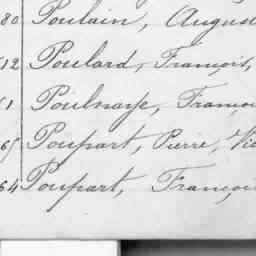 80 Poulain, August
512 Poulard, François,
51 Poulnaye, Franço
65 Poupart, Pierre, Vic
64 Poupart, Françoi